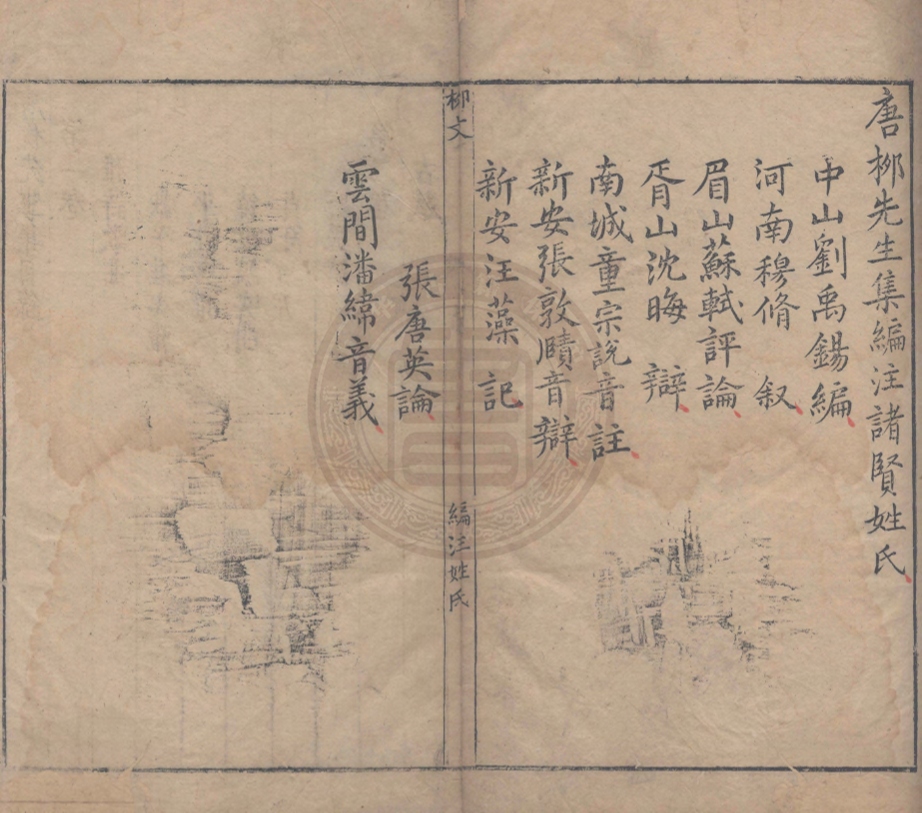 唐柳先生集編注諸賢姓氏
中山劉禹錫編
河南穆脩 叙
眉山蘇軾評論
胥山沈晦 辯
南城童宗說音註
新安張敦頤音辯
新安汪藻 記
柳文
編注姓氏
張唐英論
雲間潘緯音義